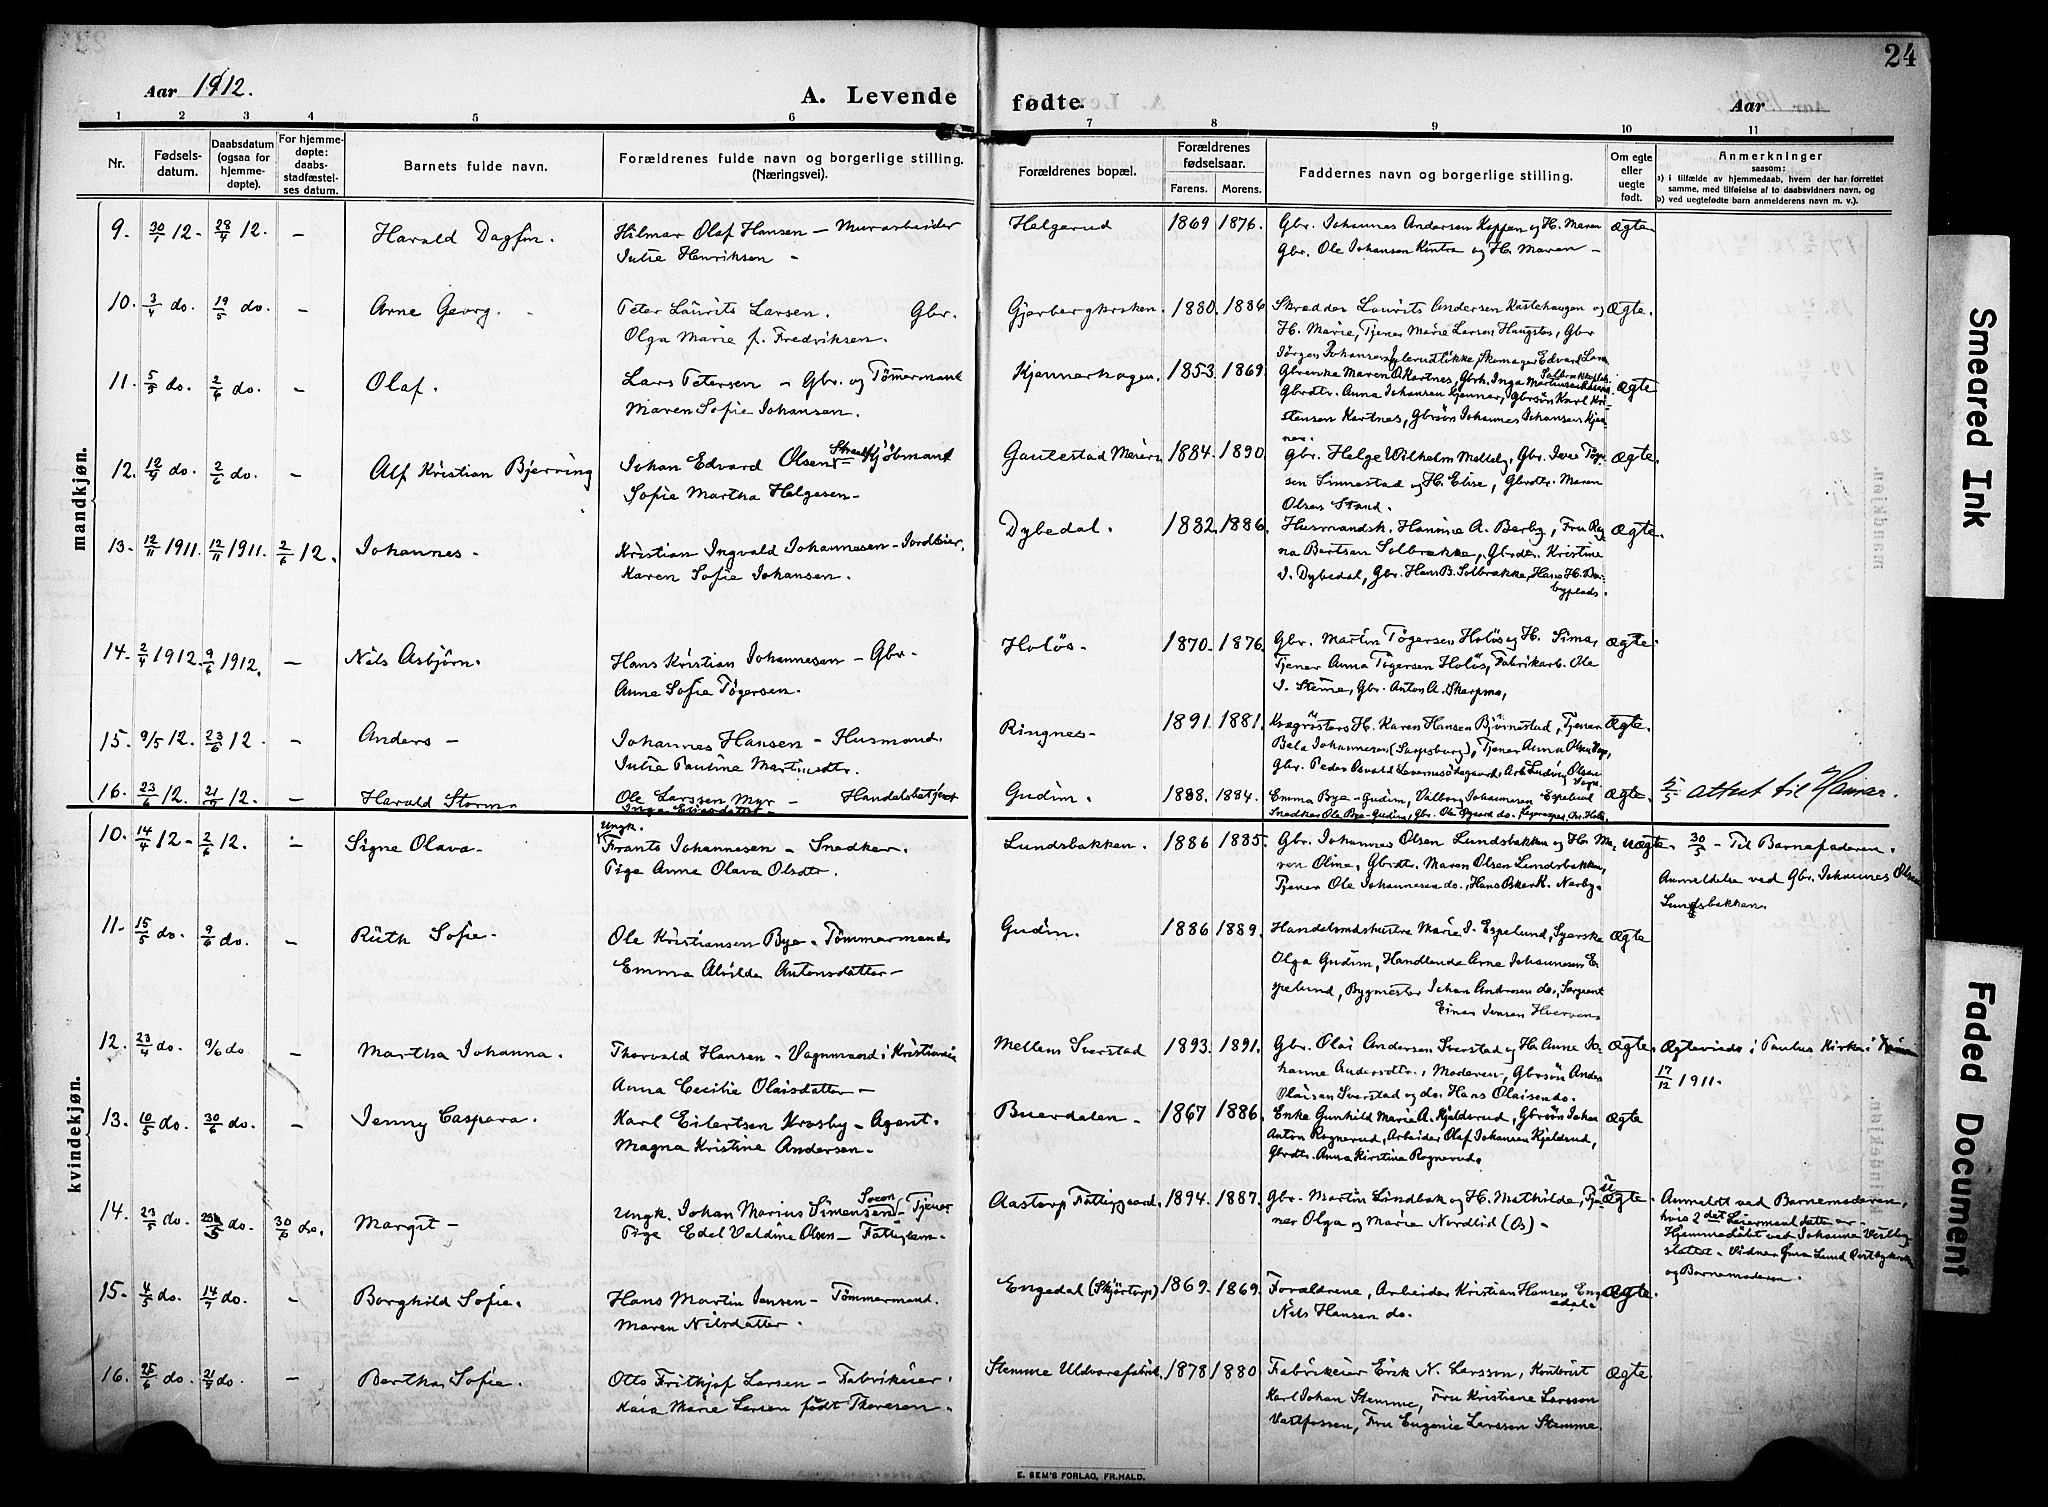 24
Aar 1912.
A. Levende fødte.
Aar
1 2 3 4 5 6 7 8 9 10 11
Nr.
Fødsels-
datum.
Daabsdatum
(ogsaa for
hjemme-
døpte).
For hjemme-
døpte:
daabs-
stadfæstel-
ses datum.
Barnets fulde navn.
Forældrenes fulde navn og borgerlige stilling.
(Næringsvei).
Forældrenes bopæl.
Forældrenes
fødselsaar.
Farens. Morens.
Faddernes navn og borgerlige stilling.
Om egte
eller
uegte
født.
Anmerkninger
saasom:
a) i tilfælde av hjemmedaab, hvem der har forrettet
samme, med tilføielse af to daabsvidners navn, og
b) ved uegtefødte barn anmelderens navn m. v.).
mandkjøn.
9. 30/1 12. 28/4 12. – Harald Dagfin. Hilmar Olaf Hansen – Murarbeider Helgerud 1869 1876. Gbr. Johannes Andersen Koppen og H. Maren Ægte
Julie Henriksen – Gbr. Ole Johansen Kentra og H. Maren –
10. 3/4 do. 19/5 do. – Arne Georg. Peter Laurits Larsen. Gbr. 1880. 1886 Skredder Laurits Andersen Kastehaugen og Ægte.
Olga Marie f. Fredriksen. H. Marie, Tjener Marie Larsen Haugstos, Gbr
Jörgen Johansen Skomager Edvard
11. 5/5 do. 2/6 do. – Olaf. Lars Petersen – Gbr. og Tømmermand Kjennerhagen. 1853. 1869. Gbrenke Maren Kartnes, Gbrk. Inga Ægte
Maren Sofie Johansen. Gbrdtr. Anna Johansen Kjennar, Gbrsön Karl Kri-
stensen Kartnes, Gbrsön Johannes Johansen Kjen-
ner.
12. 12/4 do. 2/6 do. – Alf Kristian Bjerving Johan Edvard Olsen Kjøbmand Gautestad Meieri 1884. 1890. Gbr. Helge Wilhelm Melleby, Gbr. Iver Tøge- Ægte.
Sofie Martha Helgesen – sen Sinnestad og H. Elise, Gbrdtr. Maren
Olsen Stand.
13. 12/11 1911. 12/11 1911. 2/6 12. Johannes – Kristian Ingvald Johannesen – Jordeier, Dybedal. 1882. 1886. Husmandsk. Hanine A. Berby, Fru Reg- Ægte.
Karen Sofie Johansen. na Bertsen Solbrække, Gbrdtr. Kristine
J. Dybedal, Gbr. Hans B. Solbrække, Hans H. Ber-
byplads.
14. 2/4 1912. 9/6 1912. – Nils Asbjørn. Hans Kristian Johannesen – Gbr. Holøs – 1870. 1876. Gbr. Martin Tøgersen Holøs og H. Sima, Ægte.
Anne Sofie Tøgersen. Tjener Anna Tøgersen Holøs, Fabrikarb. Ole
J. Stene, Gbr. Anton A. Skarpmo,
15. 9/5 12. 23/6 12. – Anders – Johannes Hansen – Husmand. Ringnes – 1891. 1881. H. Karen Hansen Bjørnestad, Tjener Ægte.
Julie Pauline Martinsdtr. Bela Johannesen (Sarpsborg), Tjener Anna Olsen
Gbr. Peder Osvald Arb. Ludvig Olsen
16. 23/6 12. 21/7 12. – Harald Storm Ole Larssen Myr – Handelsbetjent Gudim. 1888. 1884. Emma Bye – Gudim, Valborg Johannesen Espelund Ægte. 5/5 attest til Hamar.
Inga Snedker Ole Bye – Gudim, Gbr. Ole
kvindekjøn.
10. 14/4 12 – 2/6 12. – Signe Olava – Ungk. Frants Johannesen – Snedker. Lundsbakken. 1886 1885. Gbr. Johannes Olsen Lundsbakken og H. Ma- uægte. 30/5 – Til Barnefaderen.
Pige Anne Olava Olsdtr. ren Olina, Gbrdtr. Maren Olsen Lundsbakken, Anmeldelse ved Gbr. Johannes Olsen
Tjener Ole Johannesen do., Hans Oskar K. Nærby. Lundsbakken.
11. 15/5 do. 9/6 do. – Ruth Sofie. Ole Kristiansen Bye – Tömmermand Gudim. 1886 1889. Handelsmdshustru Marie J. Espelund, Syerske Ægte
Emma Alvilda Antonsdatter – Olga Gudim, Handlende Arne Johannesen E-
spelund, Bygmester Johan Andresen do., Sergeant
Einar Jensen
12. 23/4 do. 9/6 do – Martha Johanna. Thorvald Hansen – Vognmand i Kristiania Mellem Sverstad 1893. 1891. Gbr. Olai Andersen Sverstad og H. Anne Jo- Ægte. Ægteviede i Paulus Kirke i
Anna Cecilie Olaisdatter – hanne Andersdtr., Moderen, Gbrsön Anders 17/12 1911.
Olaisen Sverstad og do. Hans Olaisen do.
13. 10/5 do. 30/6 do. – Jenny Caspara. Karl Eilertsen Krosby – Agent. Buerdalen – 1867 1886. Enke Gunhild Marie A. Kjeldsrud, Gbrsön Johan Ægte
Magna Kristine Andersen. Anton Rognerud, Arbeider Olaf Johansen Kjeldsrud,
Gbrdtr. Anna Kirstine Rognerud.
14. 23/5 do. do. 30/6 do. Margit – Ungk. Johan Marius Simensen – Tjener Aastorp Fattiggaard. 1894. 1887. Gbr. Martin Lindbak og H. Mathilde, Tje- uægte Anmeldt ved Barnemoderen,
Pige Edel Valdine Olsen – Fattiglem. ner Olga og Marie Nordlid (Os) – hvis 2det Leiermaal dette er –
Hjemmedøbt ved Johanne
Vidner
og Barnemoderen.
15. 4/5 do. 14/7 do. – Borghild Sofie. Hans Martin Jensen – Tömmermand. Engedal (Skjörtorp) 1869. 1869. Forældrene, Arbeider Kristian Hansen Eng- Ægte.
Maren Nilsdatter. Nils Hansen do. edal
16. 25/6 do. 21/7 do. – Berthe Sofie. Otto Frithjof Larsen – Fabrikeier. Stemme Uldvarefabrik. 1878 1880 Fabrikeier Erik N. Larsson, Kontorist Ægte.
Kaia Marie Larsen født Thoresen. Karl Johan Stemme, Fru Kristiene Larsson
Vestfossen, Fru Eugenie Larsson Stemme.
E. SEM'S FORLAG, FR.HALD.
Smeared Ink
Faded Document